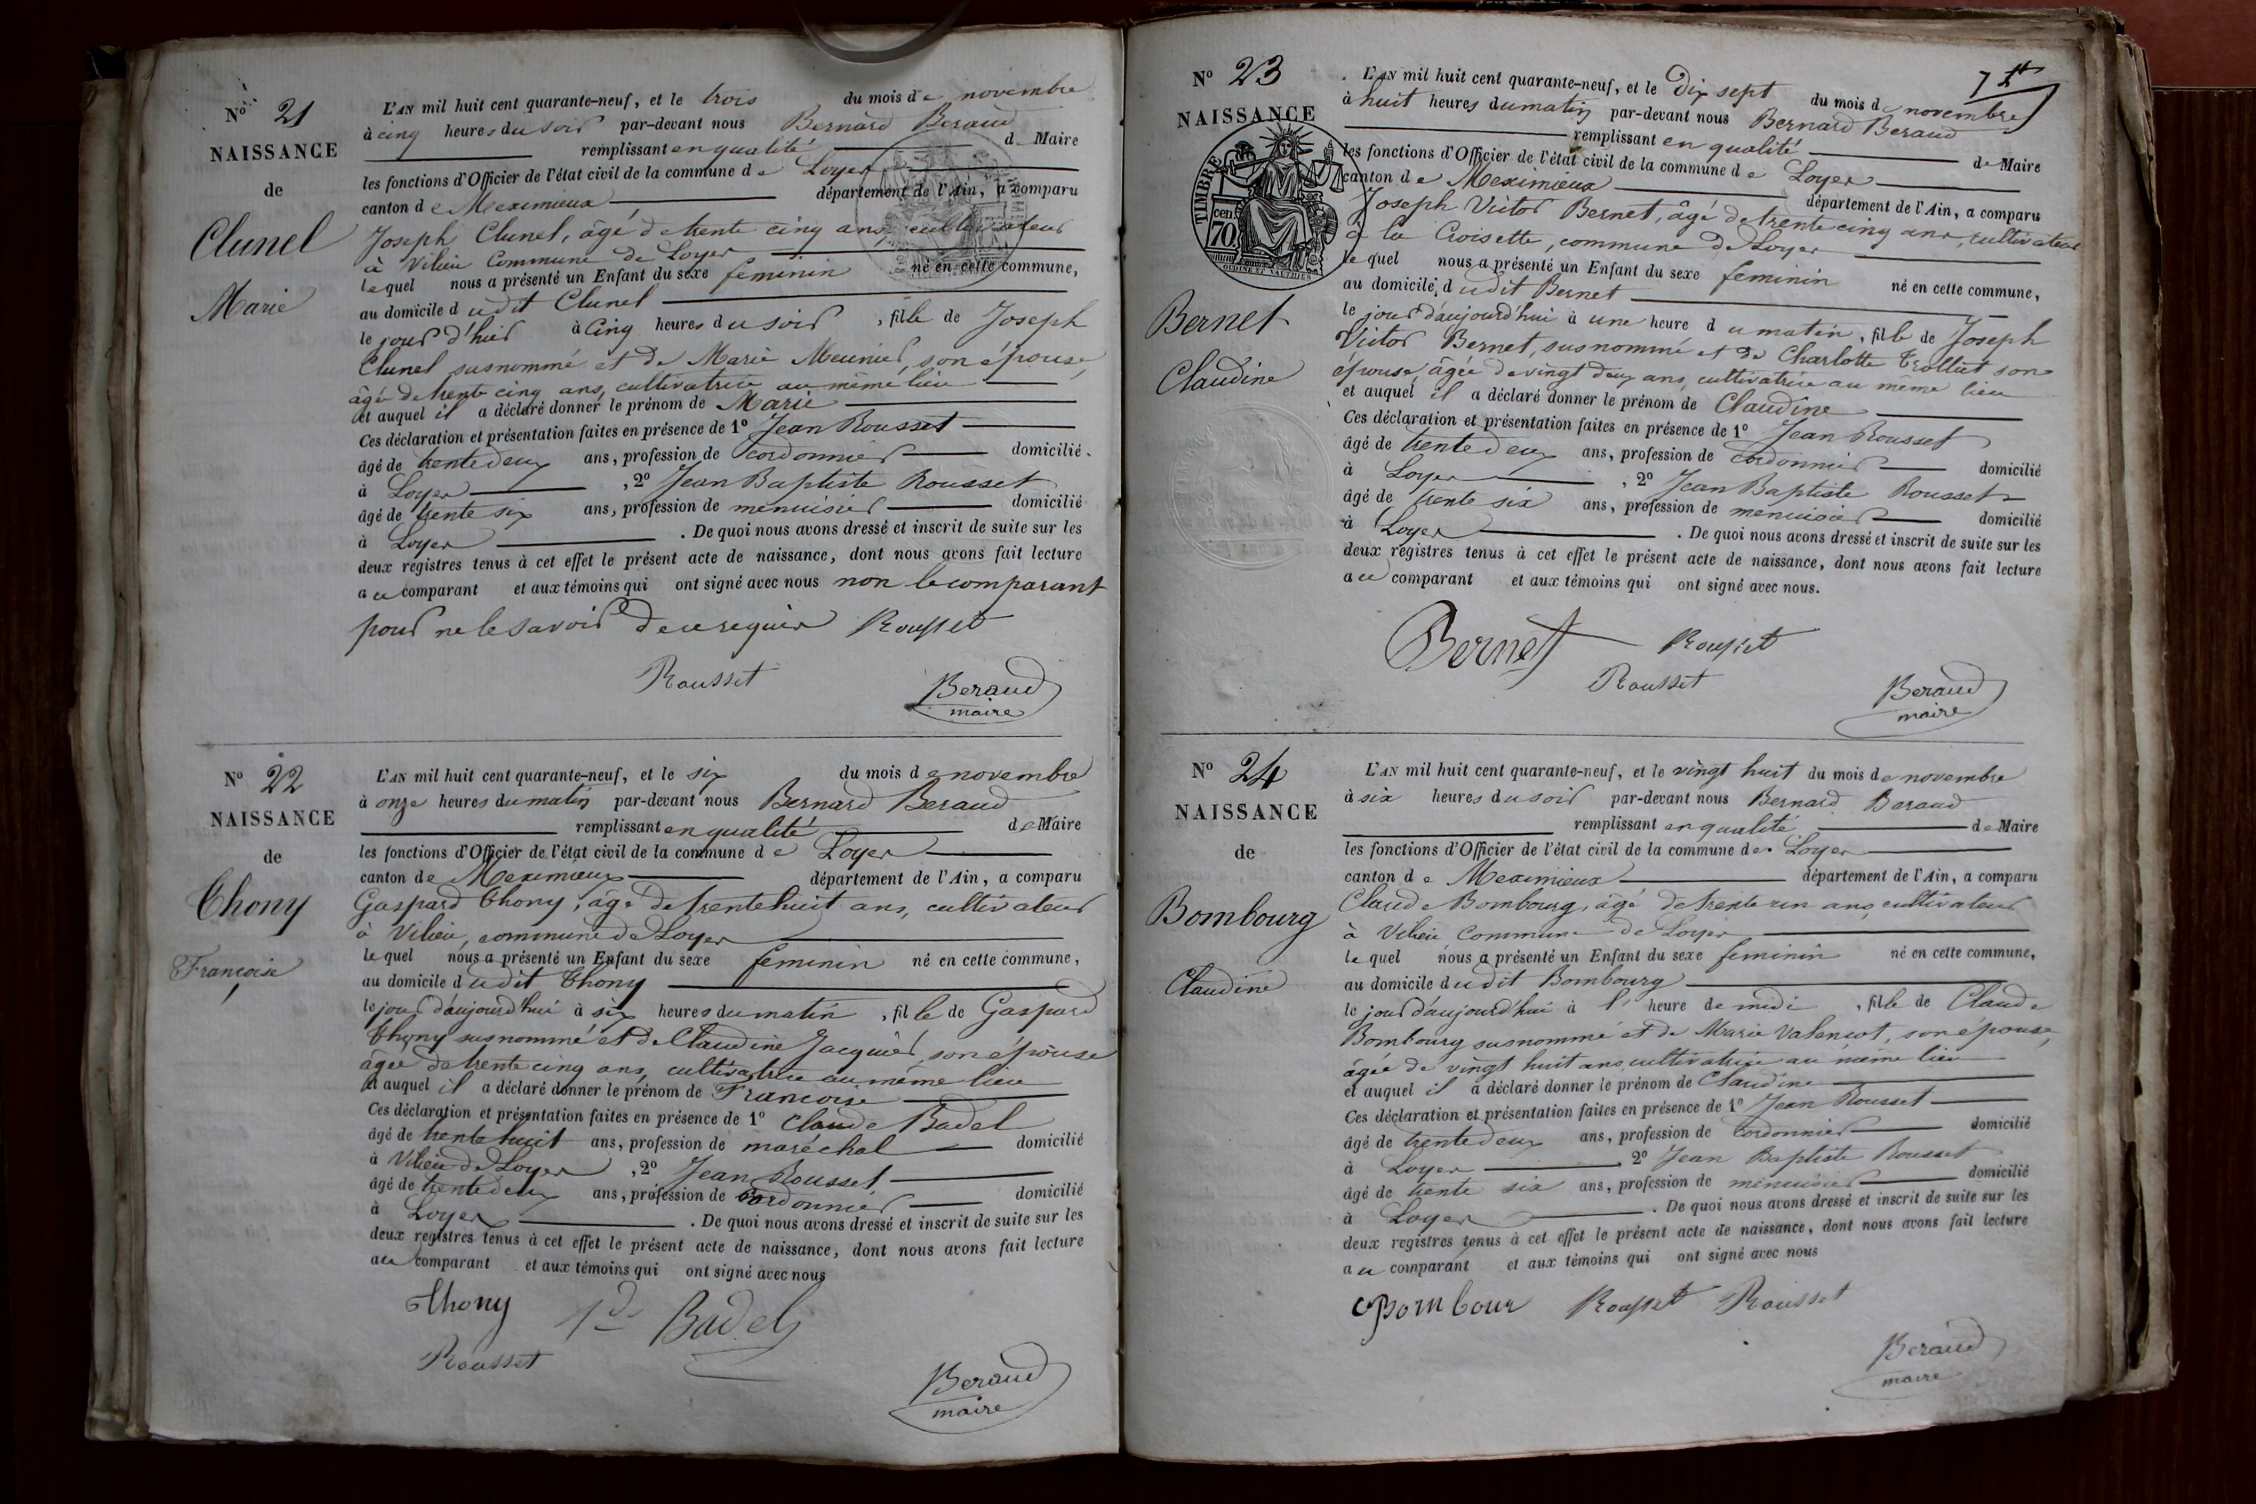 N° 21
NAISSANCE
de
Clunel
Marie
L'AN mil huit cent quarante-neuf, et le trois du mois de novembre
à cinq heures du soir par-devant nous Bernard Beraud
remplissant en qualité de Maire
les fonctions d'Officier de l'état civil de la commune de Loyer
canton de Meximieux département de l'Ain, a comparu
Joseph Clunel, âgé de trente cinq ans, cultivateur
à Vilieu Commune de Loyer
lequel nous a présenté un Enfant du sexe feminin né en cette commune,
au domicile dudit Clunel
le jour d'hier à cinq heures du soir, fille de Joseph
Clunel susnommé et de Marie Meunier, son épouse,
âgé de trente cinq ans, cultivatrice au même lieu
et auquel il a déclaré donner le prénom de Marie
Ces déclaration et présentation faites en présence de 1° Jean Rousset
âgé de trente deux ans, profession de cordonnier domicilié
à Loyer, 2° Jean Baptiste Rousset
âgé de trente six ans, profession de menuisier domicilié
à Loyer. De quoi nous avons dressé et inscrit de suite sur les
deux registres tenus à cet effet le présent acte de naissance, dont nous avons fait lecture
au comparant et aux témoins qui ont signé avec nous non le comparant
pour ne le savoir de ce requier Rousset
Rousset Beraud
maire
N° 22
NAISSANCE
de
Thony
Françoise
L'AN mil huit cent quarante-neuf, et le six du mois de novembre
à onze heures du matin par-devant nous Bernard Beraud
remplissant en qualité de Maire
les fonctions d'Officier de l'état civil de la commune de Loyer
canton de Meximieux département de l'Ain, a comparu
Gaspard Thony, âgé de trente huit ans, cultivateur
à Vilieu, commune de Loyer
lequel nous a présenté un Enfant du sexe feminin né en cette commune,
au domicile dudit Thony
le jour d'aujourd'hui à six heures du matin, fille de Gaspard
Thony susnommé et de Claudine Jacquier, son épouse
âgée de trente cinq ans, cultivatrice au même lieu
et auquel il a déclaré donner le prénom de Francoise
Ces déclaration et présentation faites en présence de 1° Claude Badel
âgé de trente huit ans, profession de maréchal domicilié
à Vilieu de Loyer, 2° Jean Rousset
âgé de trente deux ans, profession de cordonnier domicilié
à Loyer. De quoi nous avons dressé et inscrit de suite sur les
deux registres tenus à cet effet le présent acte de naissance, dont nous avons fait lecture
au comparant et aux témoins qui ont signé avec nous
Thony Badel
Rousset
Beraud
maire
N° 23
NAISSANCE
TIMBRE
cen
70
Bernet
Claudine
L'AN mil huit cent quarante-neuf, et le dix sept du mois de novembre
à huit heures du matin par-devant nous Bernard Beraud
remplissant en qualité de Maire
les fonctions d'Officier de l'état civil de la commune de Loyer
canton de Meximieux département de l'Ain, a comparu
Joseph Victor Bernet, âgé de trente cinq ans, cultivateur
à la Croisette, commune de Loyer
lequel nous a présenté un Enfant du sexe feminin né en cette commune,
au domicile dudit Bernet
le jour d'aujourd'hui à une heure du matin, fille de Joseph
Victor Bernet, susnommé et de Charlotte Trolliet son
épouse, âgée de vingt deux ans, cultivatrice au même lieu
et auquel il a déclaré donner le prénom de Claudine
Ces déclaration et présentation faites en présence de 1° Jean Rousset
âgé de trente deux ans, profession de cordonnier domicilié
à Loyer, 2° Jean Baptiste Rousset
âgé de trente six ans, profession de menuisier domicilié
à Loyer. De quoi nous avons dressé et inscrit de suite sur les
deux registres tenus à cet effet le présent acte de naissance, dont nous avons fait lecture
au comparant et aux témoins qui ont signé avec nous.
Bernet Rousset
Rousset Beraud
maire
N° 24
NAISSANCE
de
Bombourg
Claudine
L'AN mil huit cent quarante-neuf, et le vingt huit du mois de novembre
à six heures du soir par-devant nous Bernard Beraud
remplissant en qualité de Maire
les fonctions d'Officier de l'état civil de la commune de Loyer
canton de Meximieux département de l'Ain, a comparu
Claude Bombourg, âgé de trente un ans, cultivateur
à Vilieu Commune de Loyer
lequel nous a présenté un Enfant du sexe feminin né en cette commune,
au domicile dudit Bombourg
le jour d'aujourd'hui à l' heure de midi, fille de Claude
Bombourg susnommé et de Marie Valencot, son épouse,
âgée de vingt huit ans cultivatrice au même lieu
et auquel il a déclaré donner le prénom de Claudine
Ces déclaration et présentation faites en présence de 1° Jean Rousset
âgé de trente deux ans, profession de cordonnier domicilié
à Loyer 2° Jean Baptiste Rousset
âgé de trente six ans, profession de menuisier domicilié
à Loyer. De quoi nous avons dressé et inscrit de suite sur les
deux registres tenus à cet effet le présent acte de naissance, dont nous avons fait lecture
au comparant et aux témoins qui ont signé avec nous
Bombour Rousset Rousset
Beraud
maire